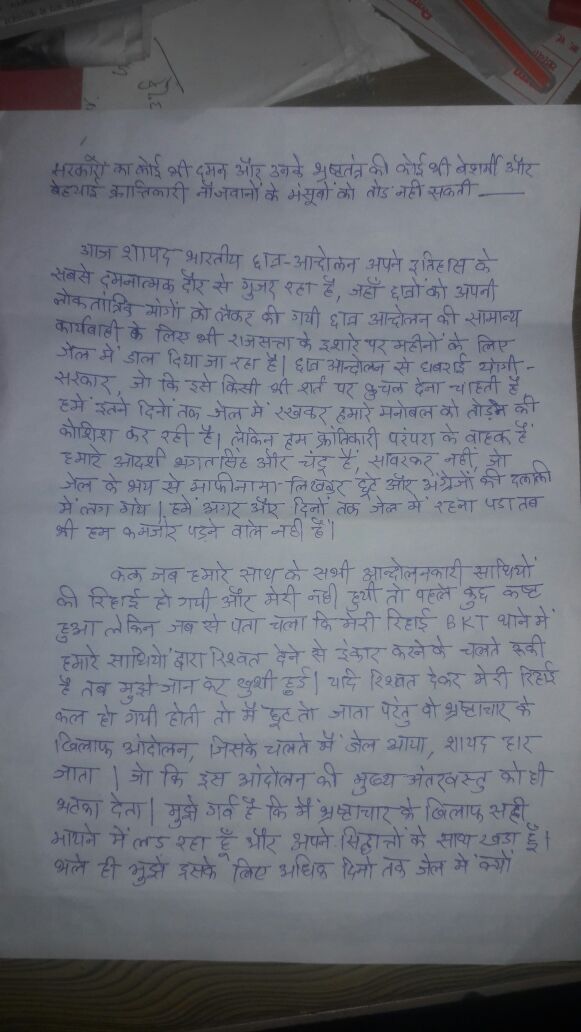 सरकारों का कोई भी दमन और उनके भ्रष्टतंत्र की कोई भी बेशर्मी और
बेहयाई क्रान्तिकारी नौजवानों के मंसूबों को तोड़ नहीं सकती —
आज शायद भारतीय छात्र-आन्दोलन अपने इतिहास के
सबसे दमनात्मक दौर से गुजर रहा है, जहाँ छात्रों को अपनी
लोकतांत्रिक मांगों को लेकर की गयी छात्र आन्दोलन की सामान्य
कार्यवाही के लिए भी राजसत्ता के इशारे पर महीनों के लिए
जेल में डाल दिया जा रहा है। छात्र आन्दोलन से घबराई योगी-
सरकार, जो कि इसे किसी भी शर्त पर कुचल देना चाहती है
हमें इतने दिनों तक जेल में रखकर हमारे मनोबल को तोड़ने की
कोशिश कर रही है। लेकिन हम क्रांतिकारी परंपरा के वाहक हैं
हमारे आदर्श भगतसिंह और चंदू हैं, सावरकर नहीं, जो
जेल के भय से माफीनामा लिखकर छूटे और अंग्रेजों की दलाली
में लग गये। हमें अगर और दिनों तक जेल में रहना पड़ा तब
भी हम कमजोर पड़ने वाले नहीं हैं।
कल जब हमारे साथ के सभी आन्दोलनकारी साथियों
की रिहाई हो गयी और मेरी नहीं हुयी तो पहले कुछ कष्ट
हुआ लेकिन जब से पता चला कि मेरी रिहाई BKT थाने में
हमारे साथियों द्वारा रिश्वत देने से इंकार करने के चलते रूकी
है तब मुझे जान कर खुशी हुई। यदि रिश्वत देकर मेरी रिहाई
कल हो गयी होती तो मैं छूट तो जाता परंतु वो भ्रष्टाचार के
खिलाफ आंदोलन, जिसके चलते मैं जेल आया, शायद हार
जाता। जो कि इस आंदोलन की मुख्य अंतरवस्तु को ही
भटका देता। मुझे गर्व है कि मैं भ्रष्टाचार के खिलाफ सही
मायने में लड़ रहा हूँ और अपने सिद्धान्तों के साथ खड़ा हूँ।
भले ही मुझे इसके लिए अधिक दिनों तक जेल में क्यों